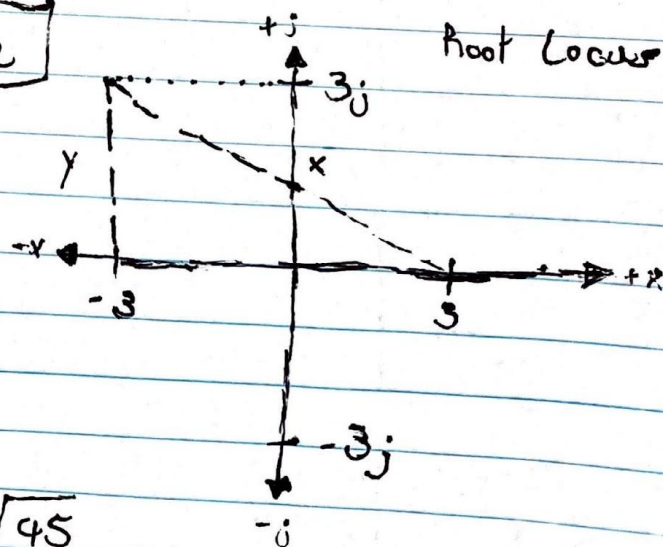 +j
Root Locus
3j
y
x
-x
+x
-3
3
-3j
√45
-j